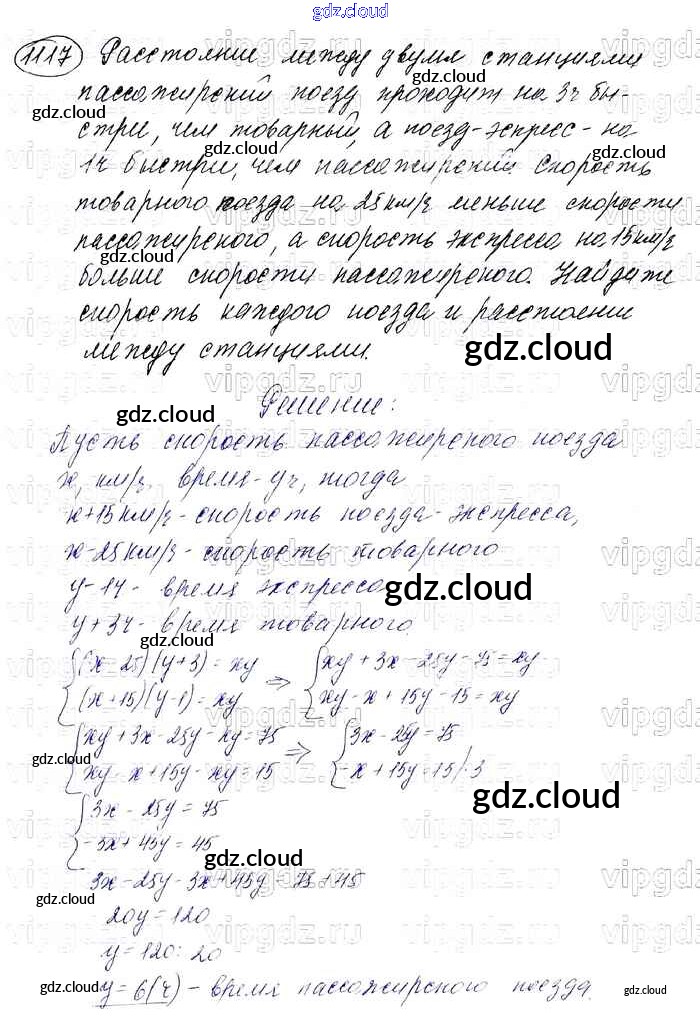 gdz.cloud
1117 Расстояние между двумя станциями
gdz.cloud
пассажирский поезд проходит на 3ч бы-
стрее, чем товарный, а поезд-экспресс - на
gdz.cloud
1ч быстрее, чем пассажирский. Скорость
товарного поезда на 25 км/ч меньше скорости
пассажирского, а скорость экспресса на 15 км/ч
gdz.cloud gdz.cloud
больше скорости пассажирского. Найдите
скорость каждого поезда и расстояние
между станциями.
gdz.cloud
Решение:
gdz.cloud
Пусть скорость пассажирского поезда
x, км/ч, время - yч, тогда
x+15км/ч - скорость поезда-экспресса,
x-25км/ч - скорость товарного
y-1ч - время экспресса
gdz.cloud
y+3ч - время товарного.
gdz.cloud
{(x-25)(y+3)=xy => {xy+3x-25y-75=xy
(x+15)(y-1)=xy xy-x+15y-15=xy
{xy+3x-25y-xy=75 => {3x-25y=75
gdz.cloud
xy-x+15y-xy=15 -x+15y=15/·3
gdz.cloud
{3x-25y=75
-3x+45y=45
gdz.cloud
3x-25y-3x+45y=75+45
20y=120
y=120:20
gdz.cloud y=6(ч) - время пассажирского поезда. gdz.cloud